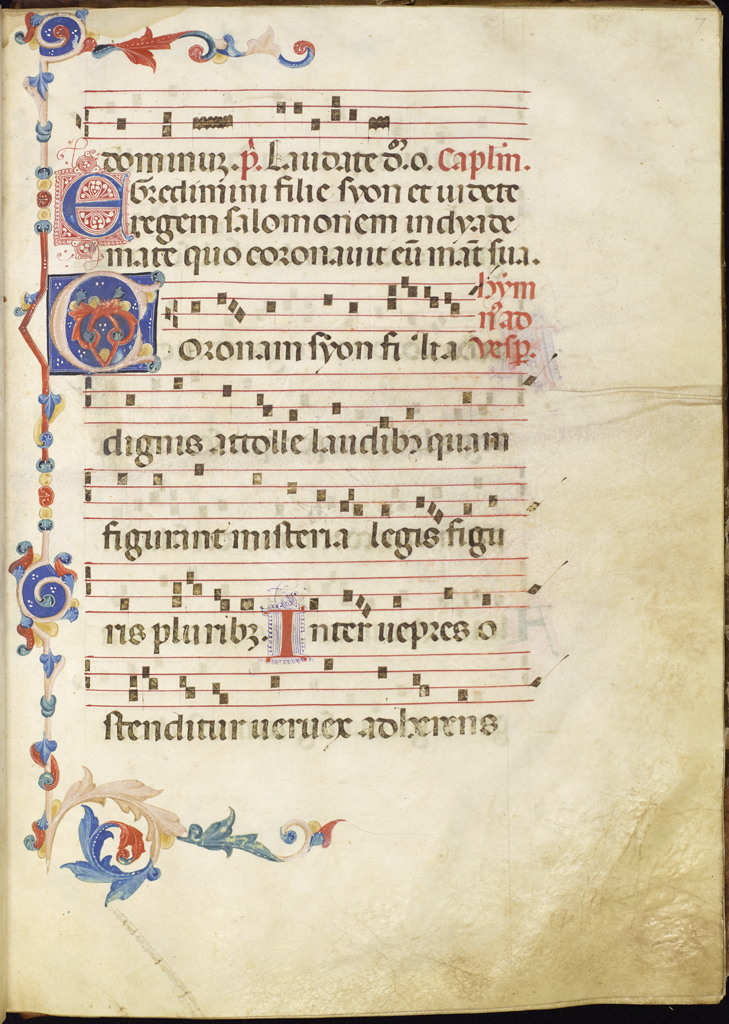 7
dominuz. p̃. Laudate d̃. o. Caplm̃.
EGredimini filie syon et uidete
regem salomonem in dyade
mate quo coronauit eũ mat̃ sua.
hym
n̾ ad
COronam syon filia vesp̃.
dignis attolle laudibꝫ quam
figurant misteria legis figu
ris pluribꝫ. Inter uepres o
stenditur ueruex adherens